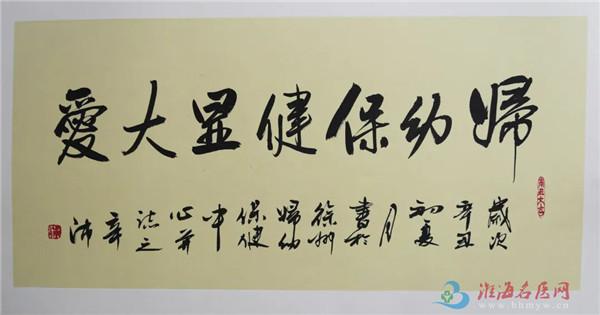 婦幼保健显大愛
歲次辛丑初夏月書於徐州婦幼保健中心並誌之辛沛
淮海名医网
www.hhmyw.com